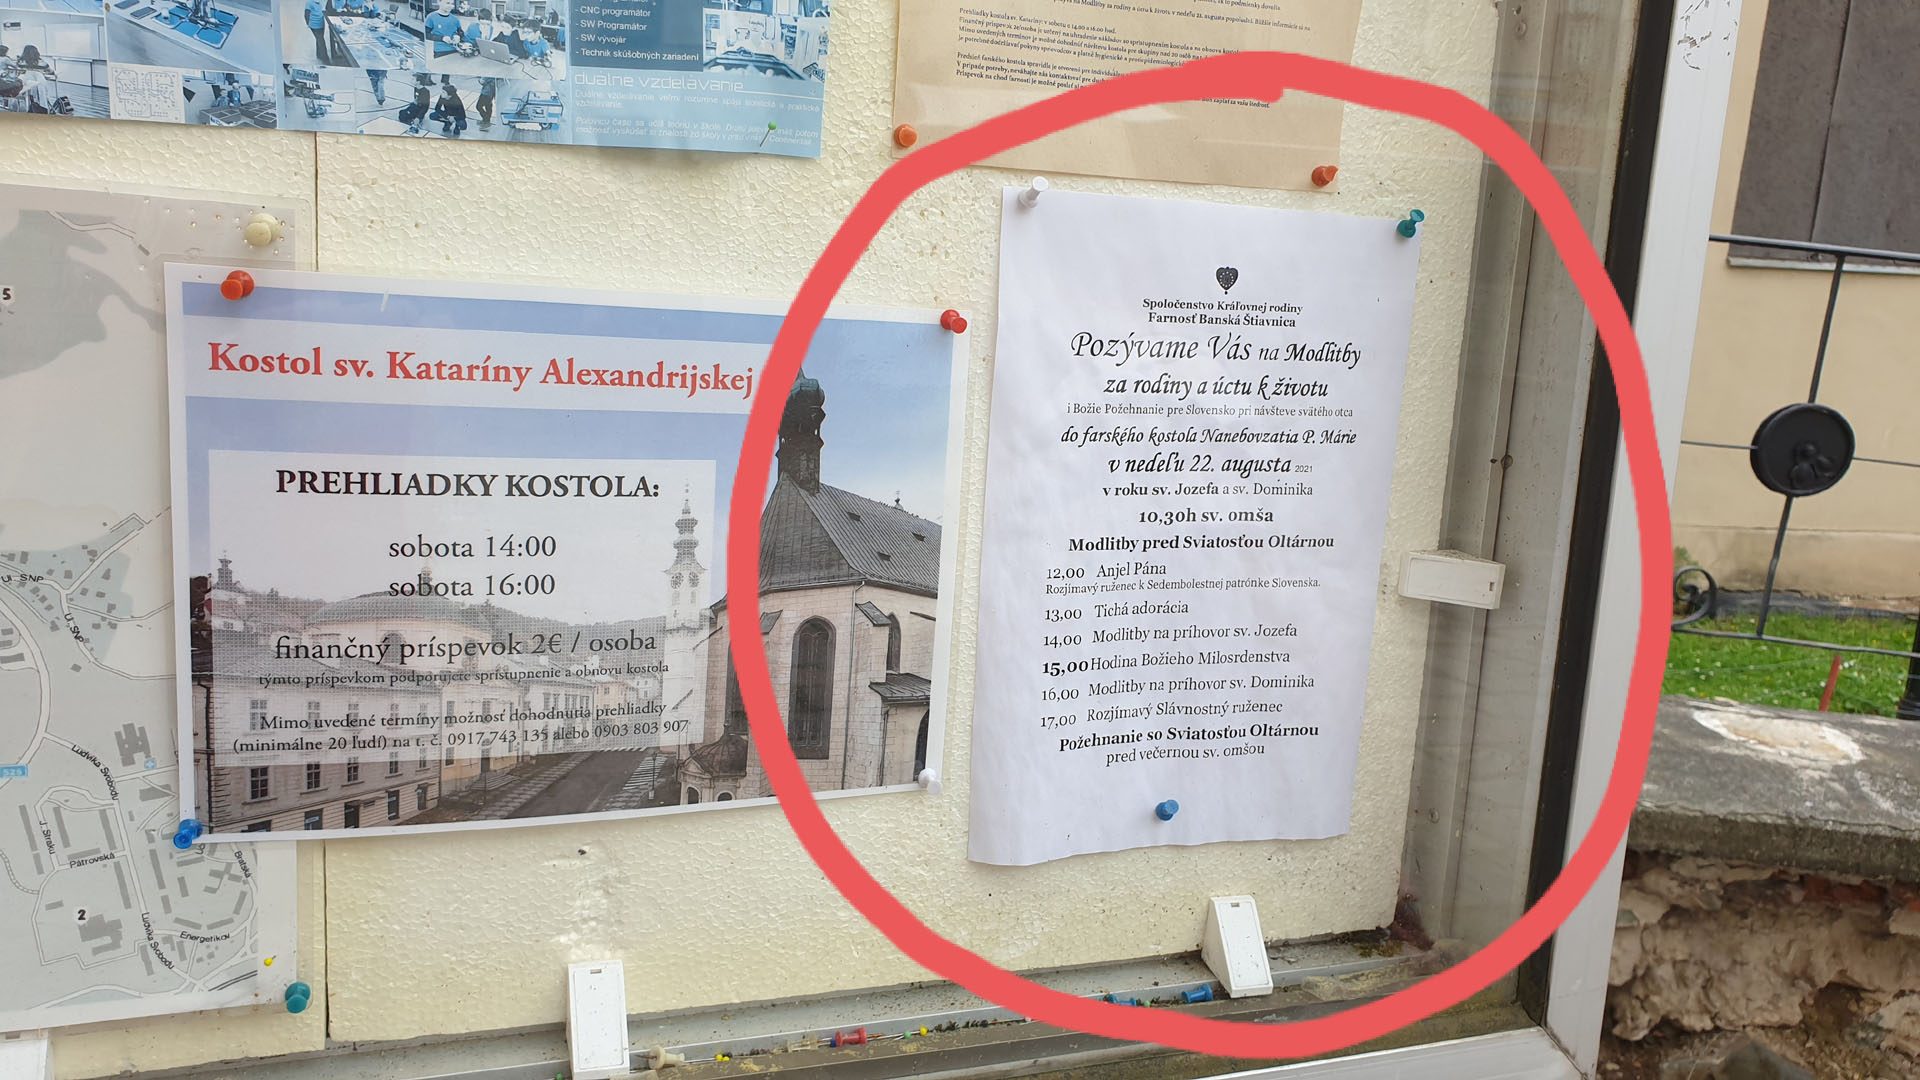 CNC programátor
- SW Programátor
- SW vývojár
- Technik skúšobných zariadení
duálne vzdelávanie
Prehliadky kostola sv. Kataríny: v sobotu o 14.00 a 16.00 hod.
5
Ul. SNP
Ul. SNP
Ludvíka Svobodu
525
J. Straku
Pátrovská
2
Ludvíka Svobodu
Energetikov
Bratská
Kostol sv. Kataríny Alexandrijskej
PREHLIADKY KOSTOLA:
sobota 14:00
sobota 16:00
finančný príspevok 2€ / osoba
týmto príspevkom podporujete sprístupnenie a obnovu kostola
Mimo uvedené termíny možnosť dohodnutia prehliadky
(minimálne 20 ľudí) na t. č. 0917 743 135 alebo 0903 803 907
Spoločenstvo Kráľovnej rodiny
Farnosť Banská Štiavnica
Pozývame Vás na Modlitby
za rodiny a úctu k životu
i Božie Požehnanie pre Slovensko pri návšteve svätého otca
do farského kostola Nanebovzatia P. Márie
v nedeľu 22. augusta 2021
v roku sv. Jozefa a sv. Dominika
10,30h sv. omša
Modlitby pred Sviatosťou Oltárnou
12,00 Anjel Pána
Rozjímavý ruženec k Sedembolestnej patrónke Slovenska.
13,00 Tichá adorácia
14,00 Modlitby na príhovor sv. Jozefa
15,00 Hodina Božieho Milosrdenstva
16,00 Modlitby na príhovor sv. Dominika
17,00 Rozjímavý Slávnostný ruženec
Požehnanie so Sviatosťou Oltárnou
pred večernou sv. omšou